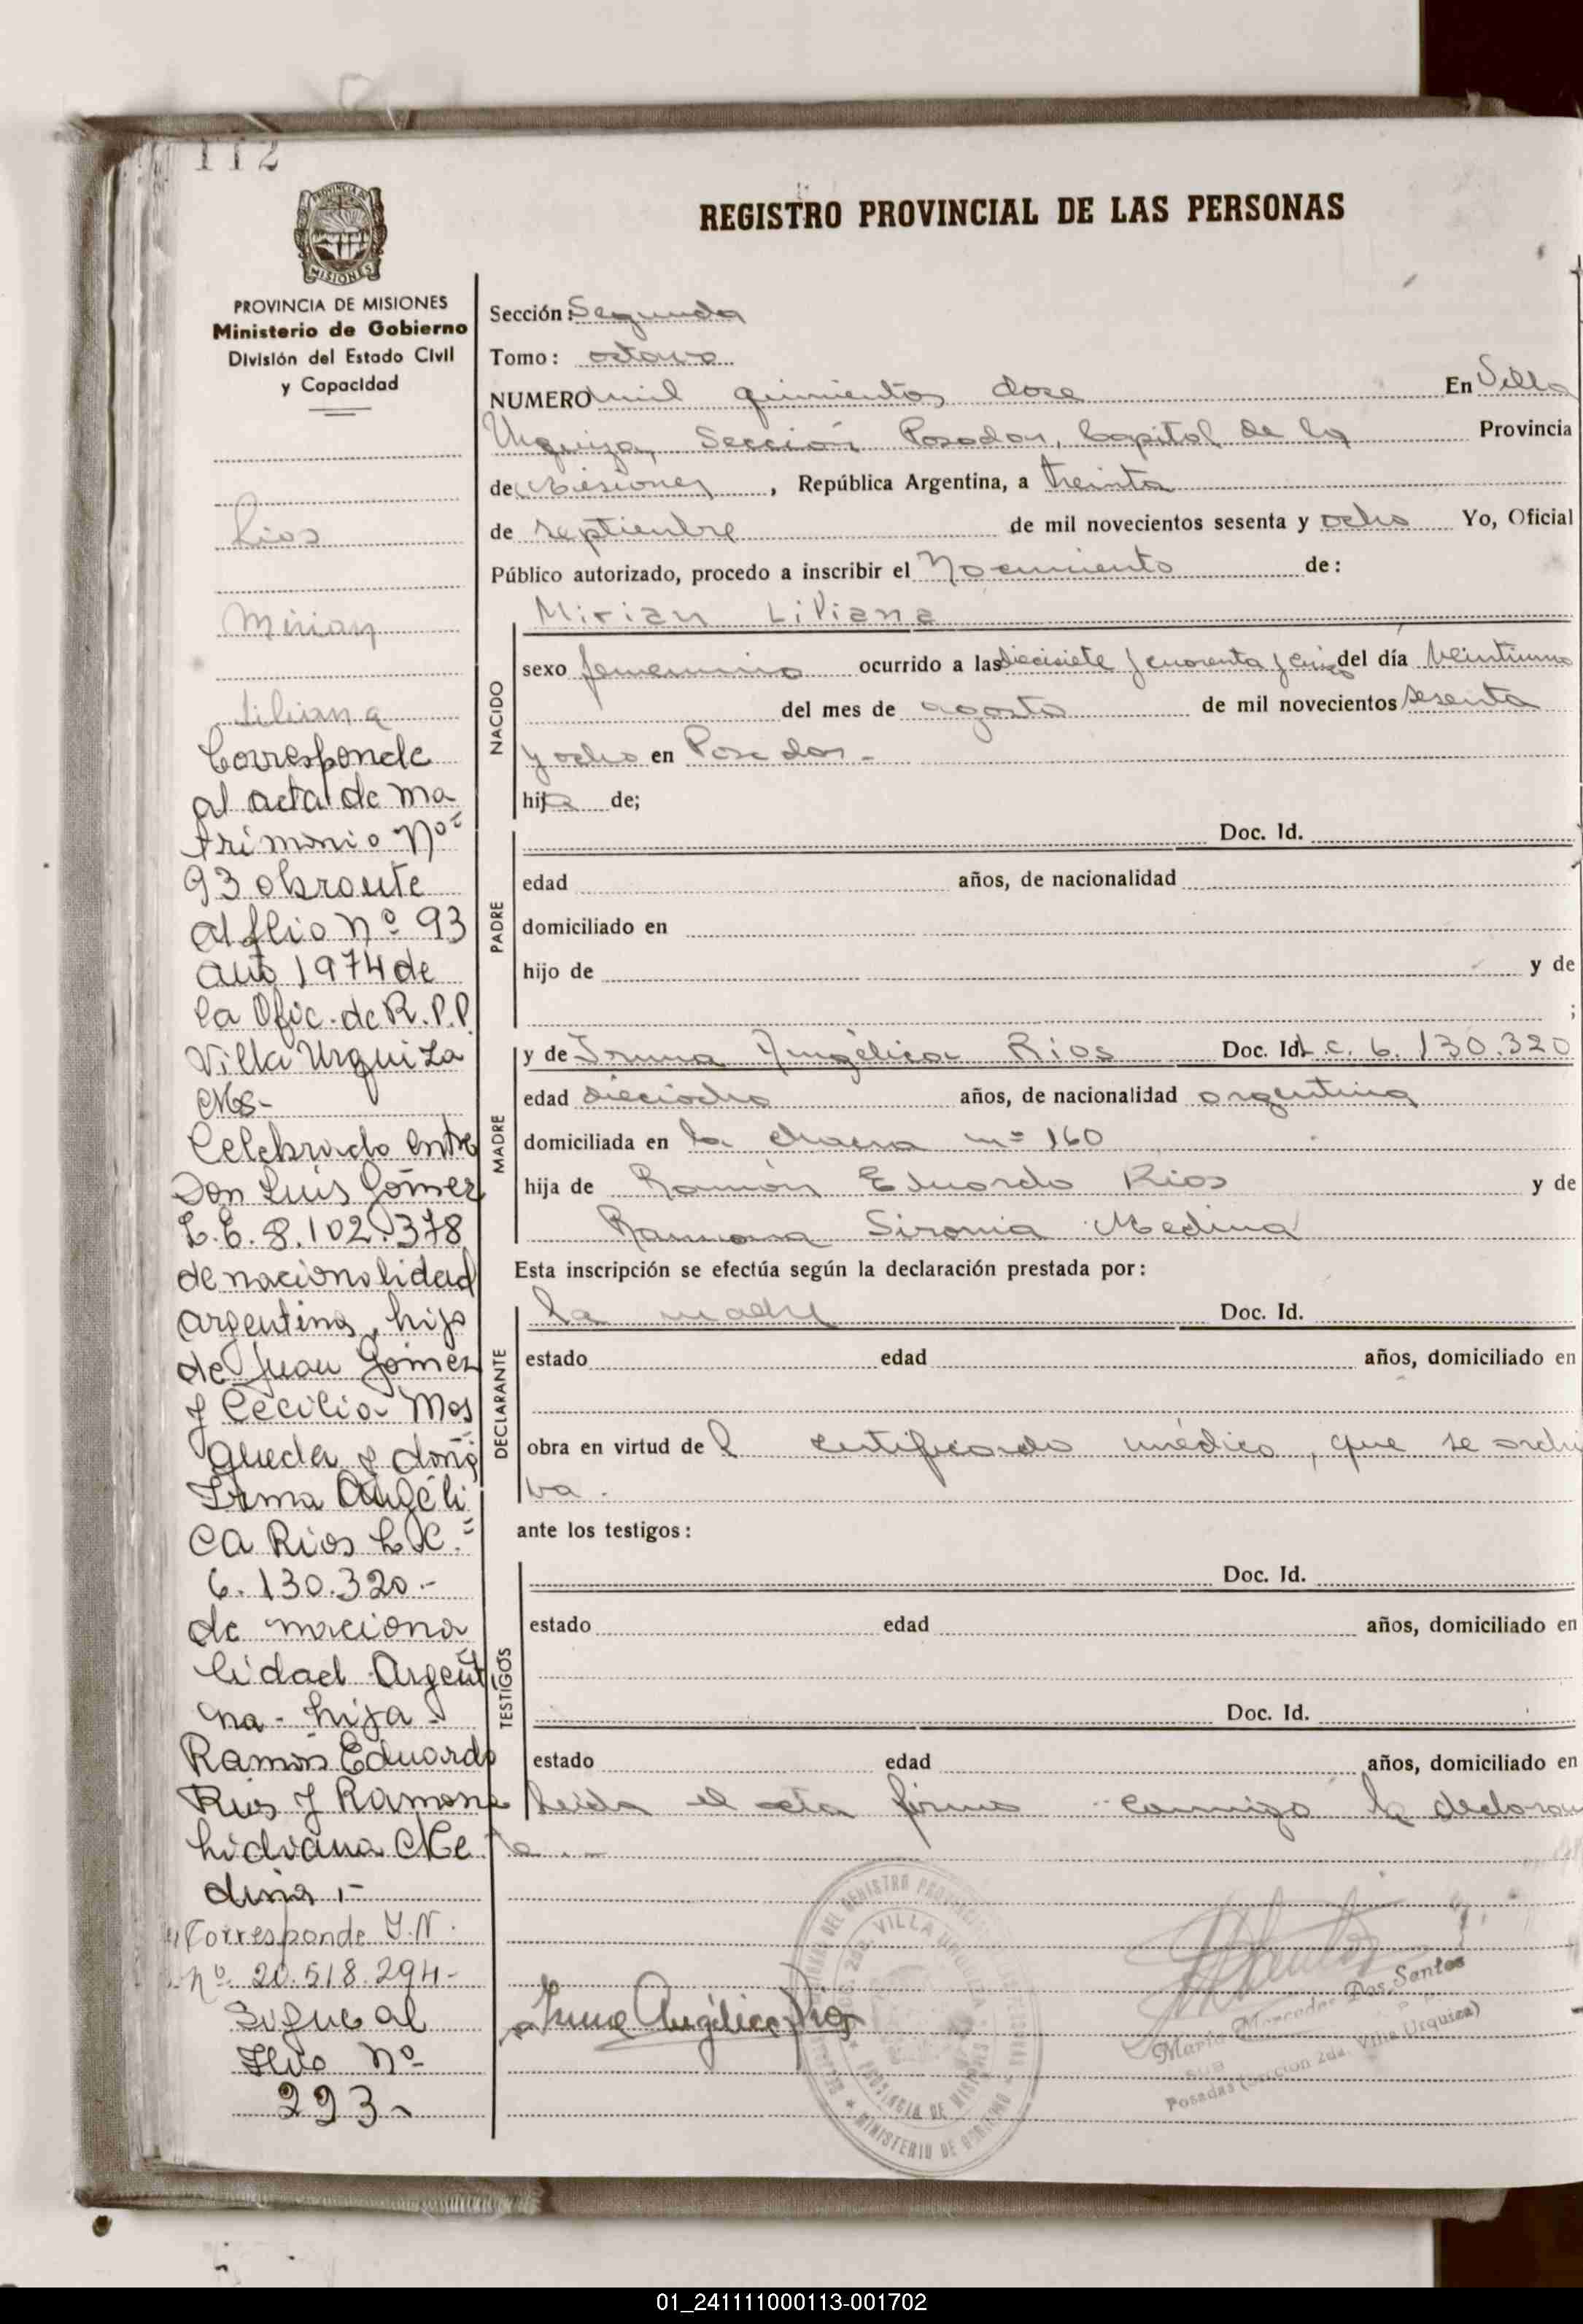 112
PROVINCIA DE MISIONES
Ministerio de Gobierno
División del Estado Civil
y Capacidad
Rios
Mirian
Liliana
Corresponde
al acta de ma
trimonio Nº
93 obrante
al flio nº 93
año 1974 de
la Ofic. de R.P.P.
Villa Urquiza
Mes-
Celebrado entre
Don Luis Gómez
L.E. 8.102.378
de nacionalidad
argentina, hijo
de Juan Gómez
y Cecilia Mos
queda y doña
Irma Angéli
ca Rios L.C.
6.130.320.-
de naciona
lidad Argenti
na - hija
Ramón Eduardo
Rios y Ramona
Lidviana Me
dina.-
Corresponde I.N.
nº 20.518.294-
Sigue al
flio Nº
293-
REGISTRO PROVINCIAL DE LAS PERSONAS
Sección: Segunda
Tomo: octavo
NUMERO mil quinientos doce En Villa
Urquiza, Sección Posadas, Capital de la Provincia
de Misiones, República Argentina, a treinta
de septiembre de mil novecientos sesenta y ocho Yo, Oficial
Público autorizado, procedo a inscribir el Nacimiento de:
NACIDO
Mirian Liliana
sexo femenino ocurrido a las diecisiete y cuarenta y cinco del día veintiuno
del mes de agosto de mil novecientos sesenta
y ocho en Posadas.-
hija de;
PADRE
Doc. Id.
edad años, de nacionalidad
domiciliado en
hijo de y de
;
MADRE
y de Irma Angélica Rios Doc. Id. L.C. 6.130.320
edad dieciocho años, de nacionalidad argentina
domiciliada en la chacra nº 160
hija de Ramón Eduardo Rios y de
Ramona Sironia Medina
Esta inscripción se efectúa según la declaración prestada por:
DECLARANTE
la madre Doc. Id.
estado edad años, domiciliado en
obra en virtud del certificado médico, que se archi
va.
ante los testigos:
TESTIGOS
Doc. Id.
estado edad años, domiciliado en
Doc. Id.
estado edad años, domiciliado en
Leida el acta firma conmigo la declaran
te.-
Irma Angélica Rios
VILLA URQUIZA
PROVINCIA DE MISIONES
MINISTERIO DE GOBIERNO
Maria Mercedes Dos Santos
Posadas (Sección 2da. Villa Urquiza)
01_241111000113-001702